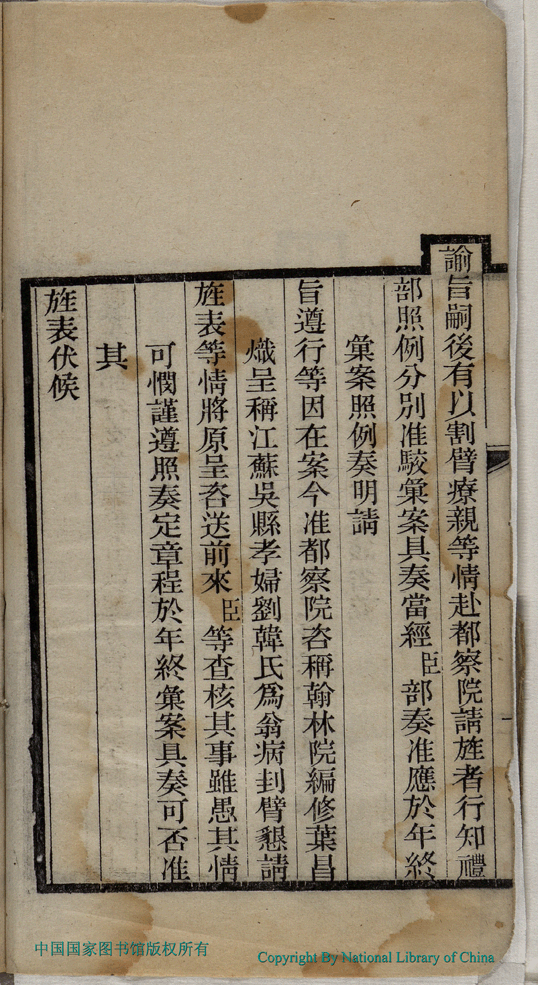 諭旨嗣後有以割臂療親等情赴都察院請旌者行知禮
部照例分別准駁彙案具奏當經臣部奏准應於年終
彙案照例奏明請
旨遵行等因在案今准都察院咨稱翰林院編修葉昌
熾呈稱江蘇吳縣孝婦劉韓氏爲翁病刲臂懇請
旌表等情將原呈咨送前來臣等查核其事雖愚其情
可憫謹遵照奏定章程於年終彙案具奏可否准
其
旌表伏候
中国国家图书馆版权所有
Copyright By National Library of China